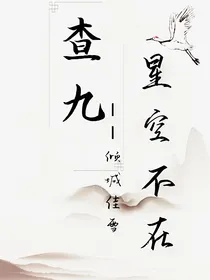 查九
——倾城佳雪
星空不在